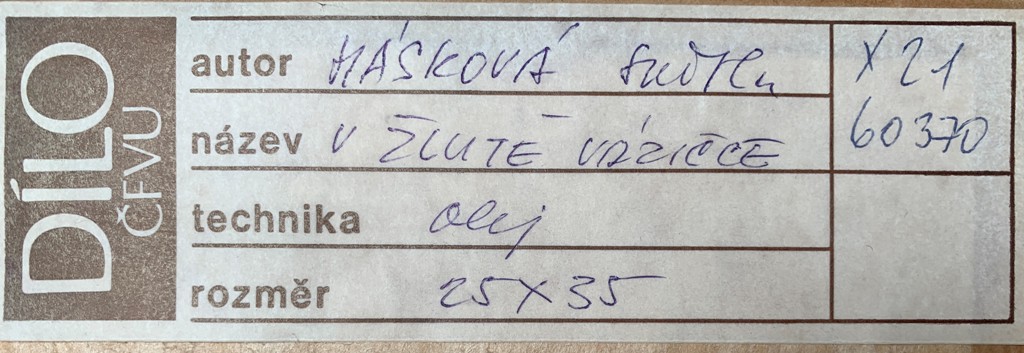 DÍLO
ČFVU
autor HÁSKOVÁ
X21
název V ŽLUTÉ VÁZIČCE
60370
technika olej
rozměr 25 x 35